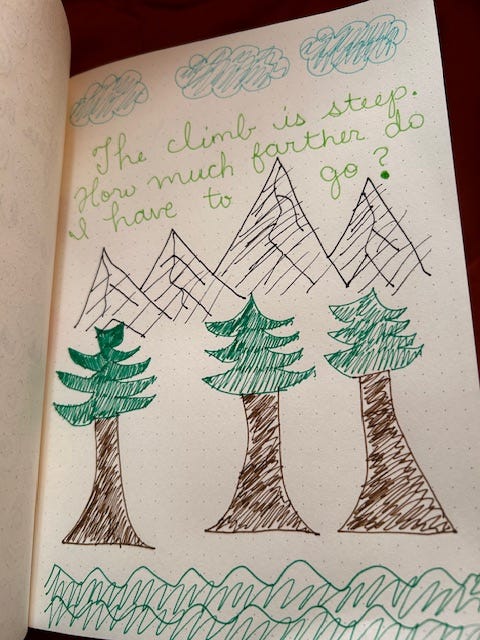 The climb is steep.
How much farther do
I have to go?